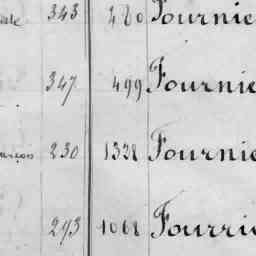 343 480 Fournie
347 499 Fournie
230 1328 Fournie
293 1068 Fourrie